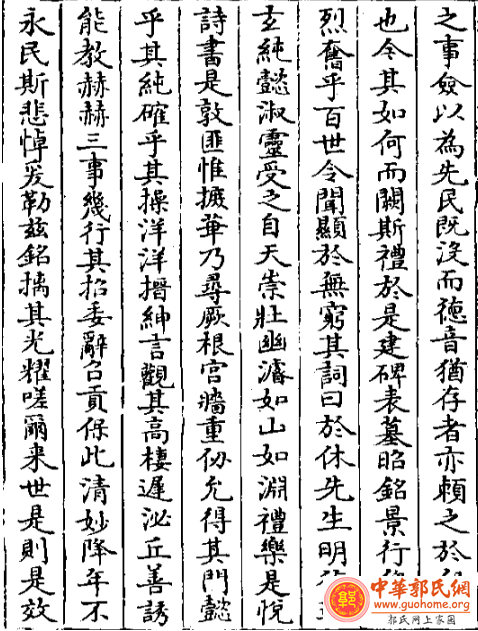 之事僉以為先民既沒而德音猶存者亦頼之於
也今其如何而闕斯禮於是建碑表墓昭銘景行
烈奮乎百世令聞顯於無窮其詞曰於休先生明
玄純懿淑靈受之自天崇壯幽濬如山如淵禮樂是恱
詩書是敦匪惟摭華乃尋厥根宫牆重仞允得其門懿
乎其純確乎其操洋洋搢紳言觀其高棲遲泌丘善誘
能教赫赫三事幾行其招委辭召貢保此清妙降年不
永民斯悲悼爰勒兹銘摛其光耀嗟爾来世是則是效
中華郭氏網
www.guohome.org
郭氏网上家園